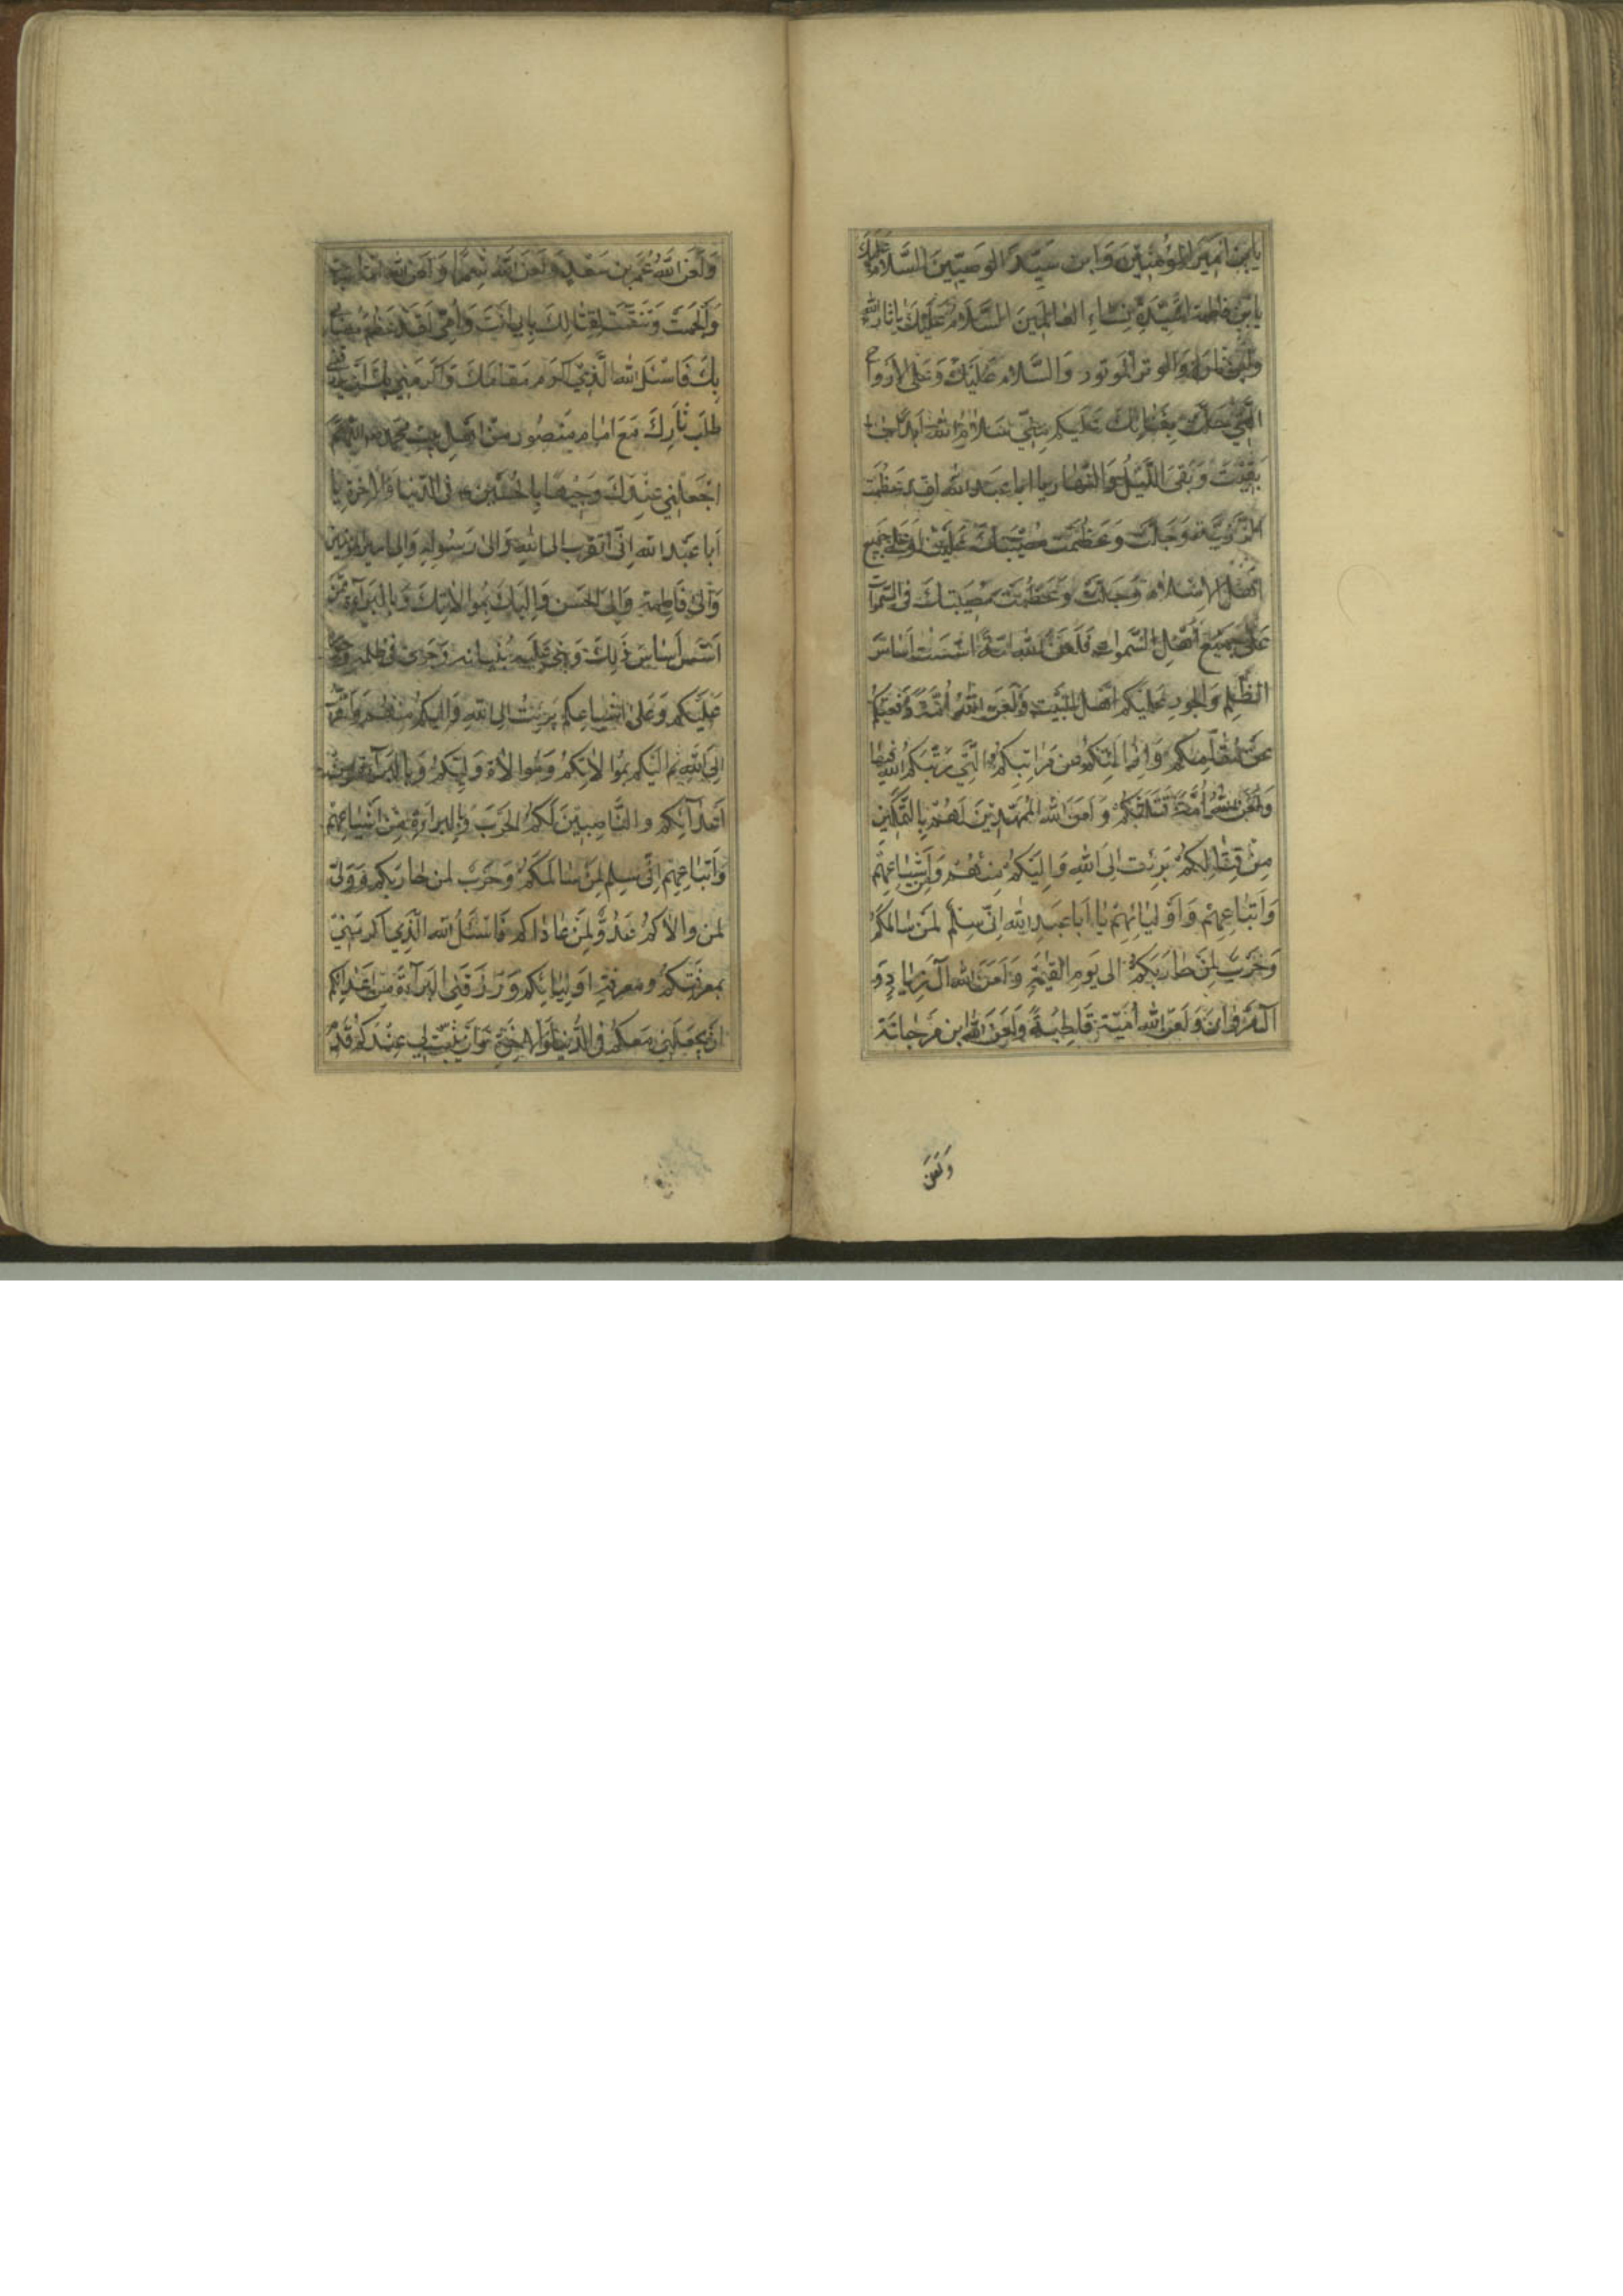 يابن امير المؤمنين وابن سيد الوصيين السلام عليك
يابن فاطمة سيدة نساء العالمين السلام عليك يا ثار الله
وابن ثاره والوتر الموتور والسلام عليك وعلى الارواح
التي حلت بفنائك عليكم مني سلام الله ابدا ما
بقيت وبقى الليل والنهار يا ابا عبد الله لقد عظمت
الرزية وجلت وعظمت مصيبتك علينا وعلى جميع
اهل الاسلام وجلت وعظمت مصيبتك في السموات
على جميع اهل السموات فلعن الله امة اسست اساس
الظلم والجور عليكم اهل البيت ولعن الله امة دفعتكم
عن مقامكم وازالتكم عن مراتبكم التي رتبكم الله فيها
ولعن الله امة قتلتكم ولعن الله الممهدين لهم بالتمكين
من قتالكم برئت الى الله واليكم منهم ومن اشياعهم
واتباعهم واوليائهم يا ابا عبد الله اني سلم لمن سالمكم
وحرب لمن حاربكم الى يوم القيمة ولعن الله آل زياد و
آل مروان ولعن الله امية قاطبة ولعن الله ابن مرجانة
ولعن
ولعن الله عمر بن سعد ولعن الله شمرا ولعن الله امة اسرجت
والجمت وتنقبت لقتالك بابي انت وامي لقد عظم مصابي
بك فاسئل الله الذي اكرم مقامك واكرمني بك ان يرزقني
طلب ثارك مع امام منصور من اهل بيت محمد اللهم
اجعلني عندك وجيها بالحسين في الدنيا والاخرة يا
ابا عبد الله اني اتقرب الى الله والى رسوله والى امير المؤمنين
والى فاطمة والى الحسن واليك بموالاتك وبالبرآءة ممن
اسس اساس ذلك وبنى عليه بنيانه وجرى في ظلمه وجوره
عليكم وعلى اشياعكم برئت الى الله واليكم منهم واتقرب
الى الله ثم اليكم بموالاتكم وموالاة وليكم وبالبرآءة من
اعدآئكم والناصبين لكم الحرب وبالبرآءة من اشياعهم
واتباعهم اني سلم لمن سالمكم وحرب لمن حاربكم وولي
لمن والاكم عدو لمن عاداكم فاسئل الله الذي اكرمني
بمعرفتكم ومعرفة اوليائكم ورزقني البرآءة من اعدائكم
ان يجعلني معكم في الدنيا والاخرة وان يثبت لي عندكم قدم